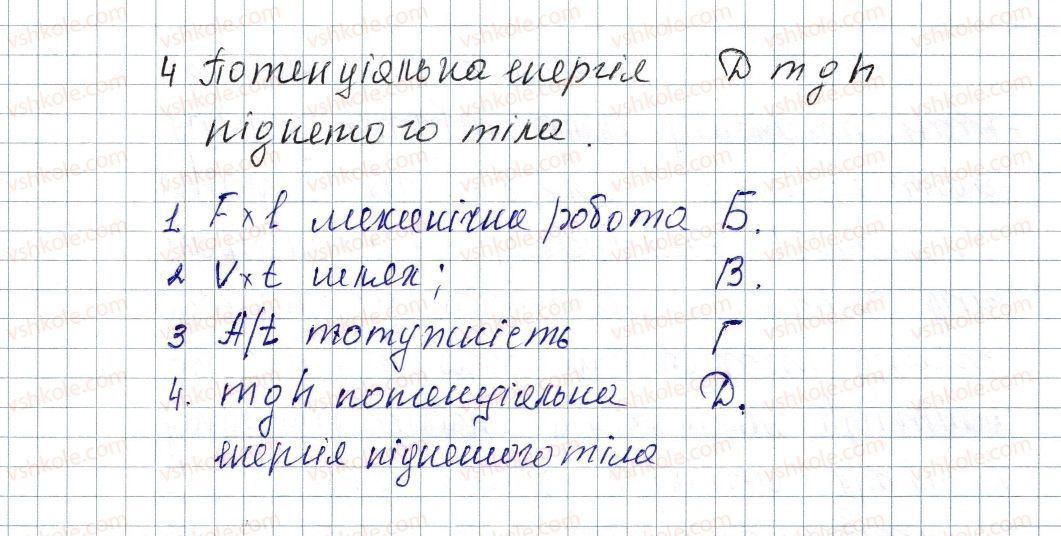 4 Потенціальна енергія Д mgh
піднетого тіла.
1. F×l механічна робота Б.
2 V×t шлях; В.
3 A/t потужність Г
4. mgh потенціальна Д.
енергія піднетого тіла